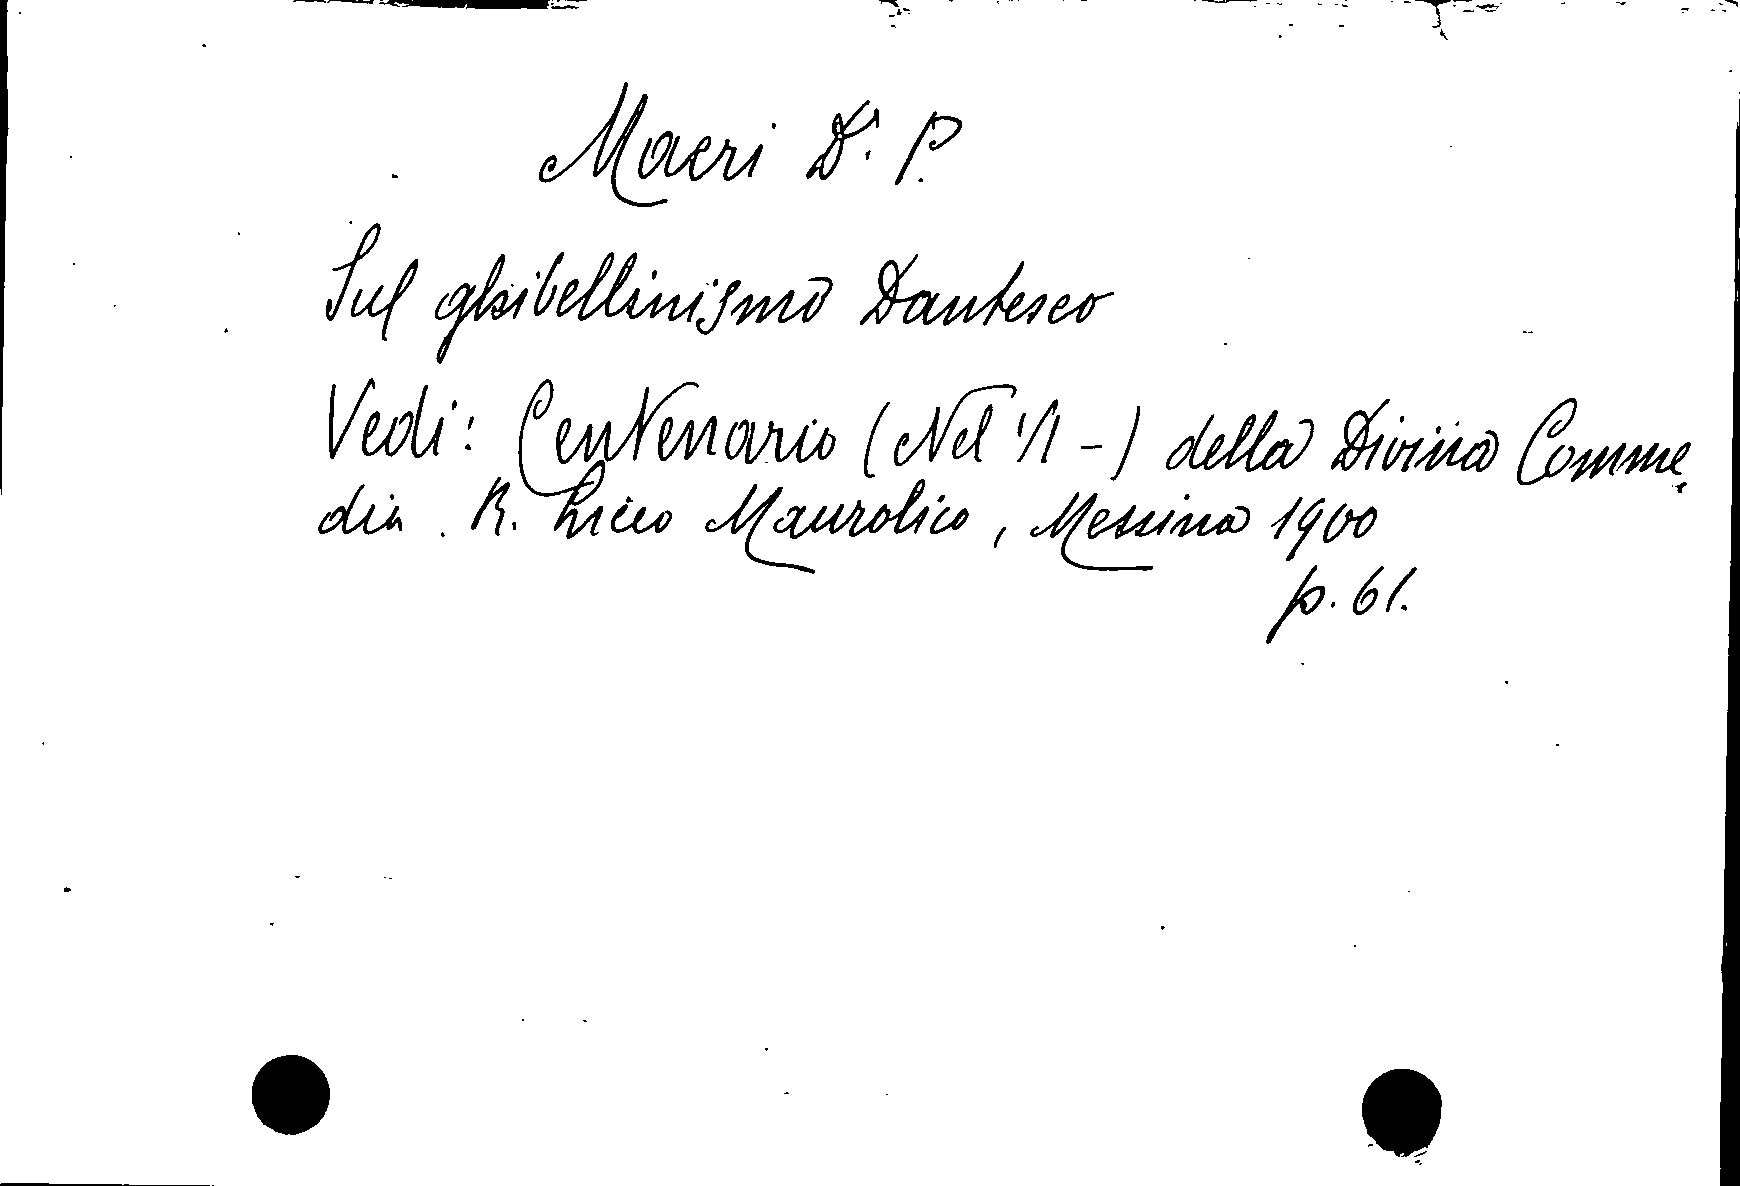 Macri D.r P.
Sul ghibellinismo Dantesco
Vedi: Centenario (Nel VI -) della Divina Comme
dia. R. Liceo Maurolico, Messina 1900
p. 61.